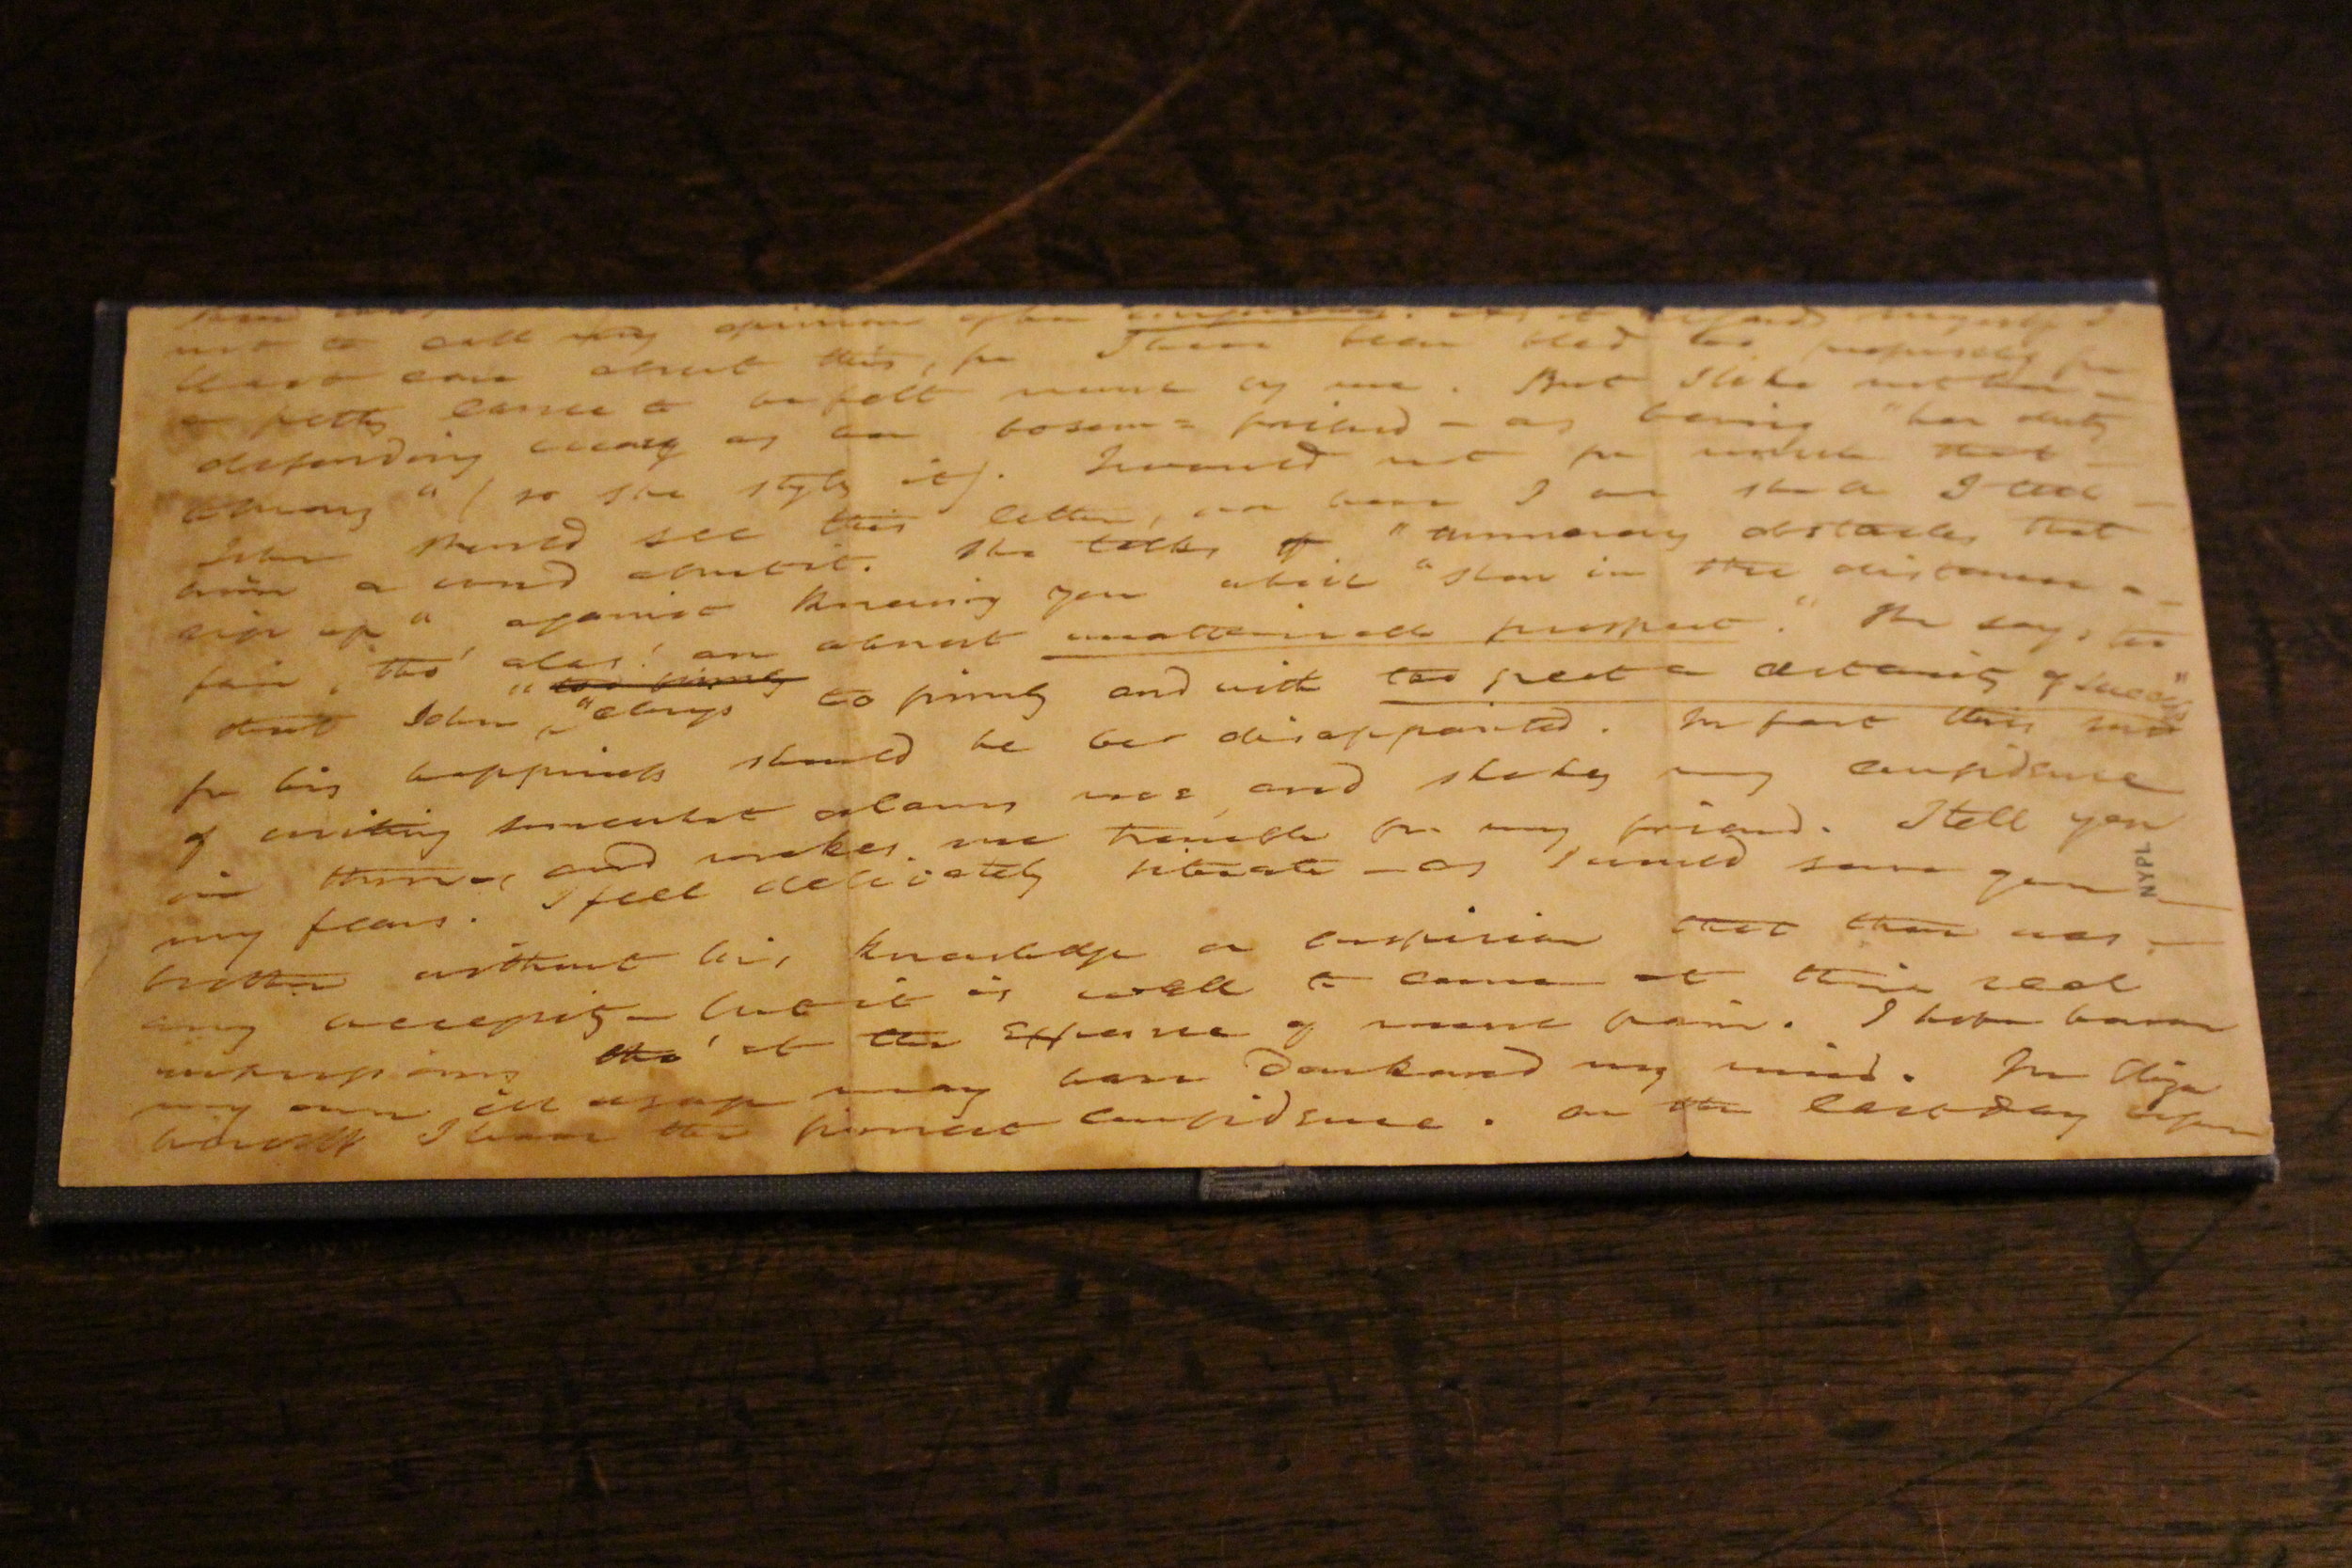 not to call my opinion of her
least care about this, for I have been bled too profusely for
a petty lance to be felt more by me. But I like not her
defending as her bosom = friend - as being "her duty
always" (so she styles it). I would not for that
John should see this letter, nor have I or shall I tell
him a word about it. She talks of "numerous obstacles that
rise up" against knowing you whilst "shon in the distance a
fair, tho' alas! an almost unattainable prospect." She says too
that John "too firmly "clings to firmly and with too great a certainty of success"
for his happiness should he be disappointed. In fact this
of writing somewhat alarms me and shakes my confidence
in them, and makes me tremble for my friend. I tell you
my fears. I feel delicately situate - as I would save your
brother without his knowledge or suspicion that there was
any necessity - but it is well to come at their real
impressions tho' at the expense of some pain. I hope
my own ill usage may have darkened my mind. In Eliza
herself I have the firmest confidence. On the last day
NYPL